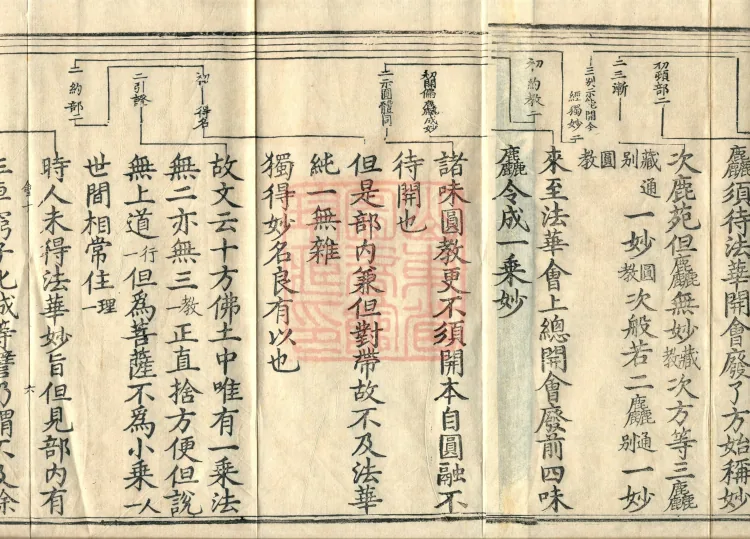 初頓部二
二三漸一
三别示能開今
經獨妙二
初約教二
初開偏麤成妙
二示圓體同
初得名
二引證
二約部二
麤須待法華開會廢了方始稱妙
次鹿苑但麤無妙藏教次方等三麤
藏通别一妙圓教次般若二麤通别一妙
圓教
來至法華會上總開會廢前四味
麤令成一乘妙
諸味圓教更不須開本自圓融不
待開也
但是部内兼但對帶故不及法華
純一無雜
獨得妙名良有以也
故文云十方佛土中唯有一乘法
無二亦無三一教正直捨方便但說
無上道一行但爲菩薩不爲小乘一人
世間相常住一理
時人未得法華妙旨但見部内有
六
窮子化城等譬乃謂不及餘